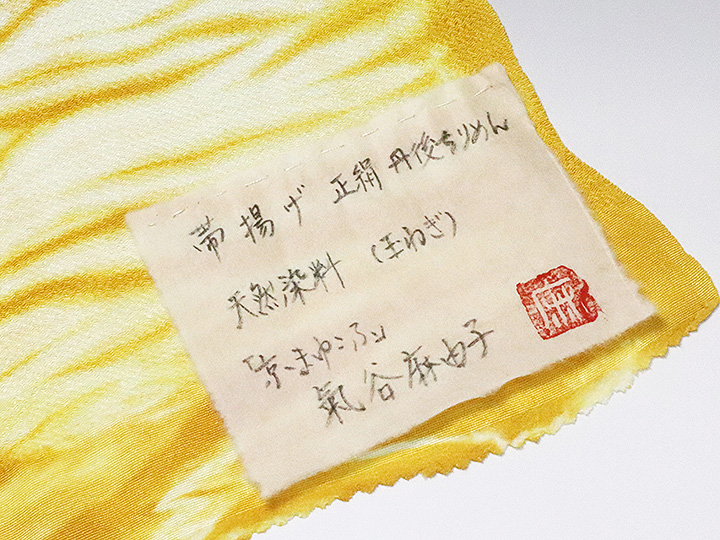 帯揚げ 正絹 丹後ちりめん
天然染料 (玉ねぎ)
「京、まゆこふ」
氣谷麻由子
麻